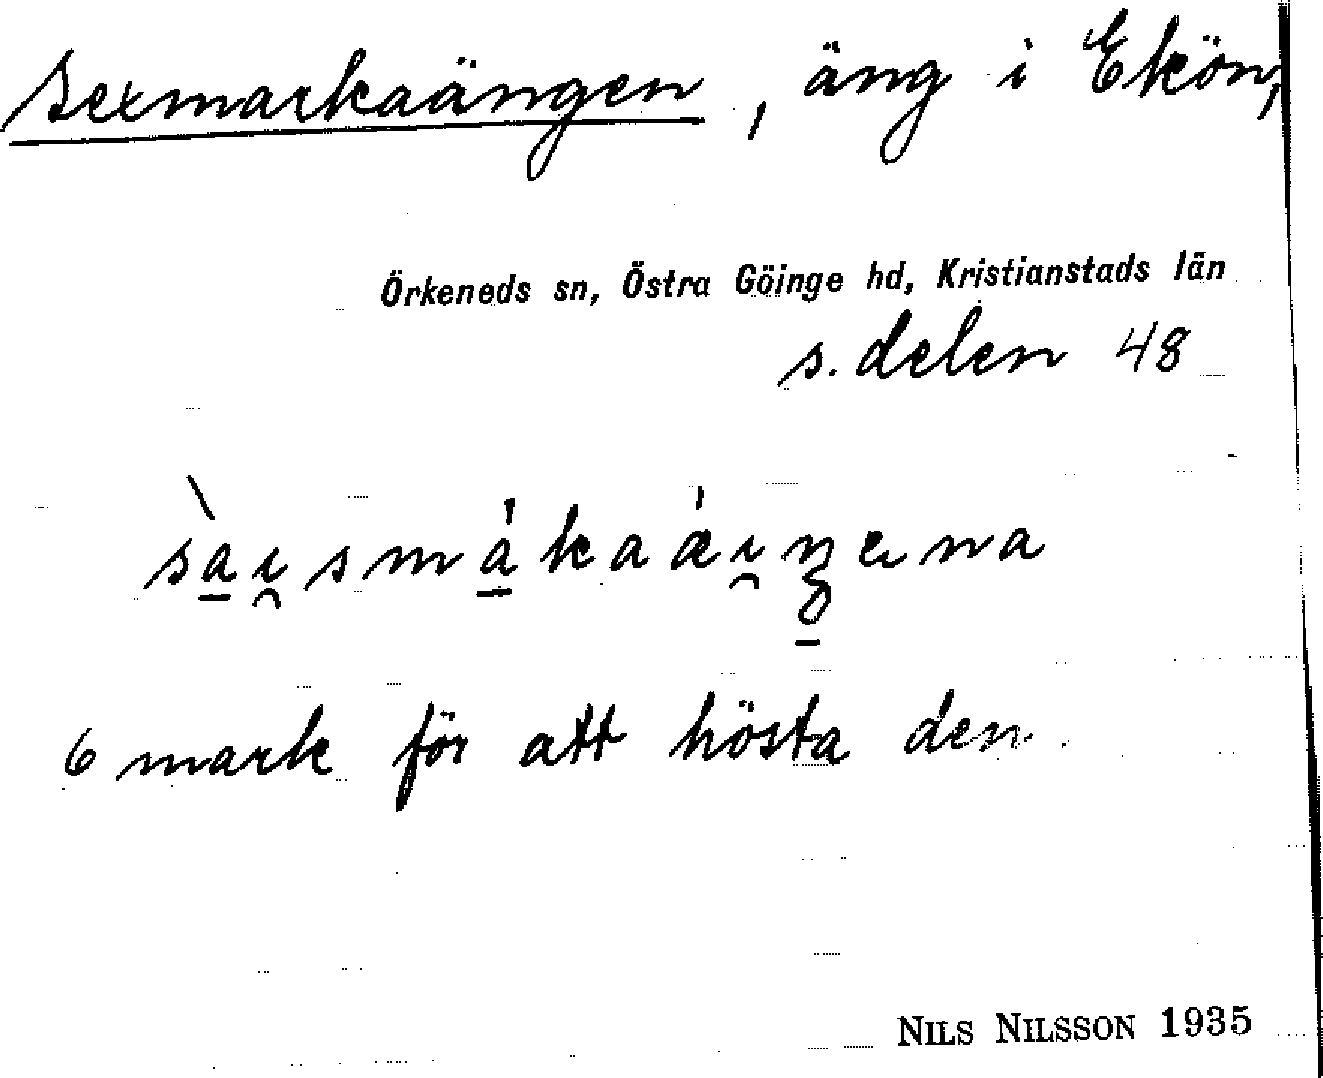 Sexmarkaängen, äng i Ekön,
Örkeneds sn, Östra Göinge hd, Kristianstads län
s. delen 48
6 mark för att hösta den.
NILS NILSSON 1935